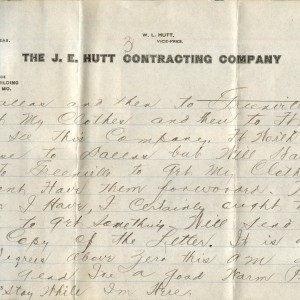 W. L. HUTT,
VICE-PRES.
3
THE J. E. HUTT CONTRACTING COMPANY
MO.
Dallas and then to Greenville
get My Clothes and then to Ft
to see this Company. It
to Dallas but Will Ha
to Greenville to Get My Cloth
Have them forwarded.
I Have, I Certainly ought
to get something Will send
Copy of the Letter. It is
degrees above zero this am
Glad I'm in a Good Warm
to Stay While I'm Here.